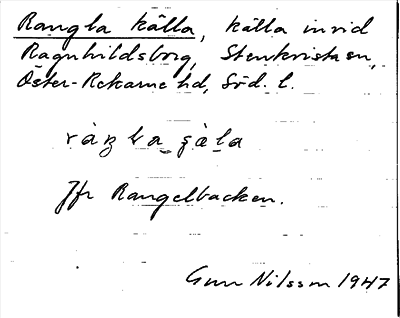 Rangla källa, källa invid
Ragnhildsborg, Stenkvista sn,
Öster-Rekarne hd, Söd. l.
Jfr Rangelbacken.
Gun Nilsson 1947